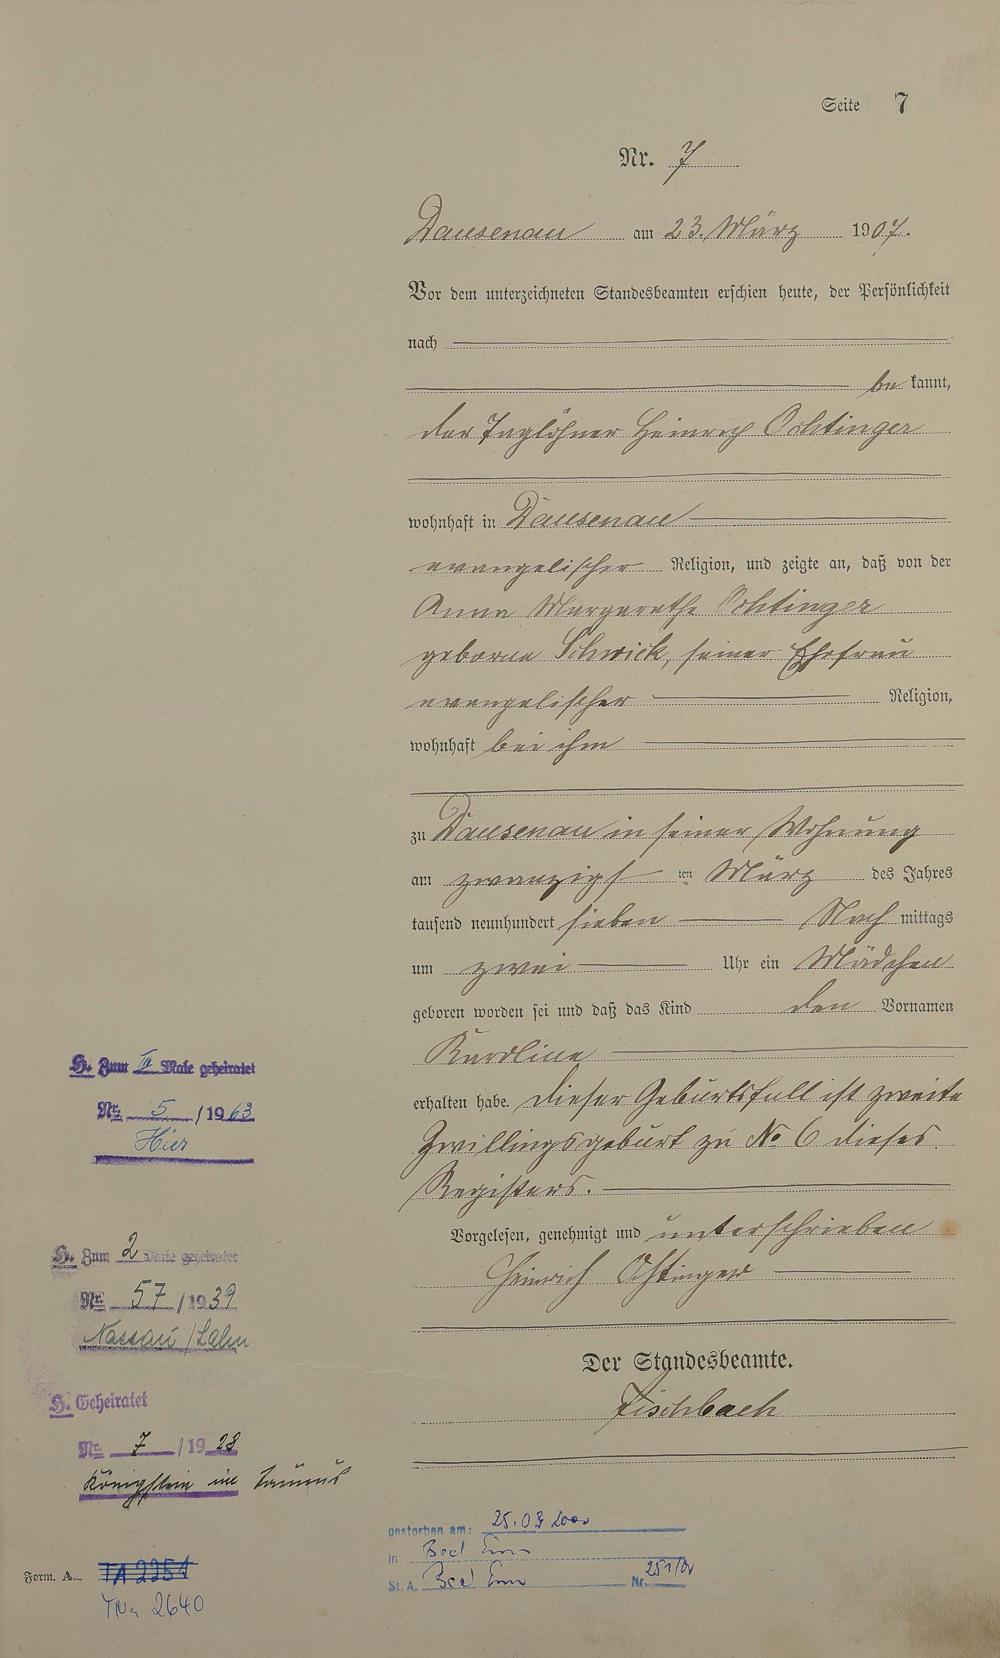 Seite 7
Nr. 7
Dausenau am 23. März 1907.
Vor dem unterzeichneten Standesbeamten erschien heute, der Persönlichkeit
nach
be kannt,
der Taglöhner Heinrich Ochtinger
wohnhaft in Dausenau
evangelischer Religion, und zeigte an, daß von der
Anna Margarethe Ochtinger
geborne Schwick, seiner Ehefrau
evangelischer Religion,
wohnhaft bei ihm
zu Dausenau in seiner Wohnung
am zwanzigsten März des Jahres
tausend neunhundert sieben Nach mittags
um zwei Uhr ein Mädchen
geboren worden sei und daß das Kind den Vornamen
Karoline
erhalten habe. Dieser Geburtsfall ist zweite
Zwillingsgeburt zu No 6 dieses
Registers.
Vorgelesen, genehmigt und unterschrieben
Heinrich Ochtinger
Der Standesbeamte.
Fischbach
H. Zum III Male geheiratet
Nr. 5/1963
Hier
H. Zum 2 Male geheiratet
Nr. 57/1939
Nassau/Lahn
H. Geheiratet
Nr. 7/1928
Königstein im Taunus
gestorben am: 25.03 2000
in Bad Ems
St. A. Bad Ems Nr.
Form. A.
TA 2251
2640